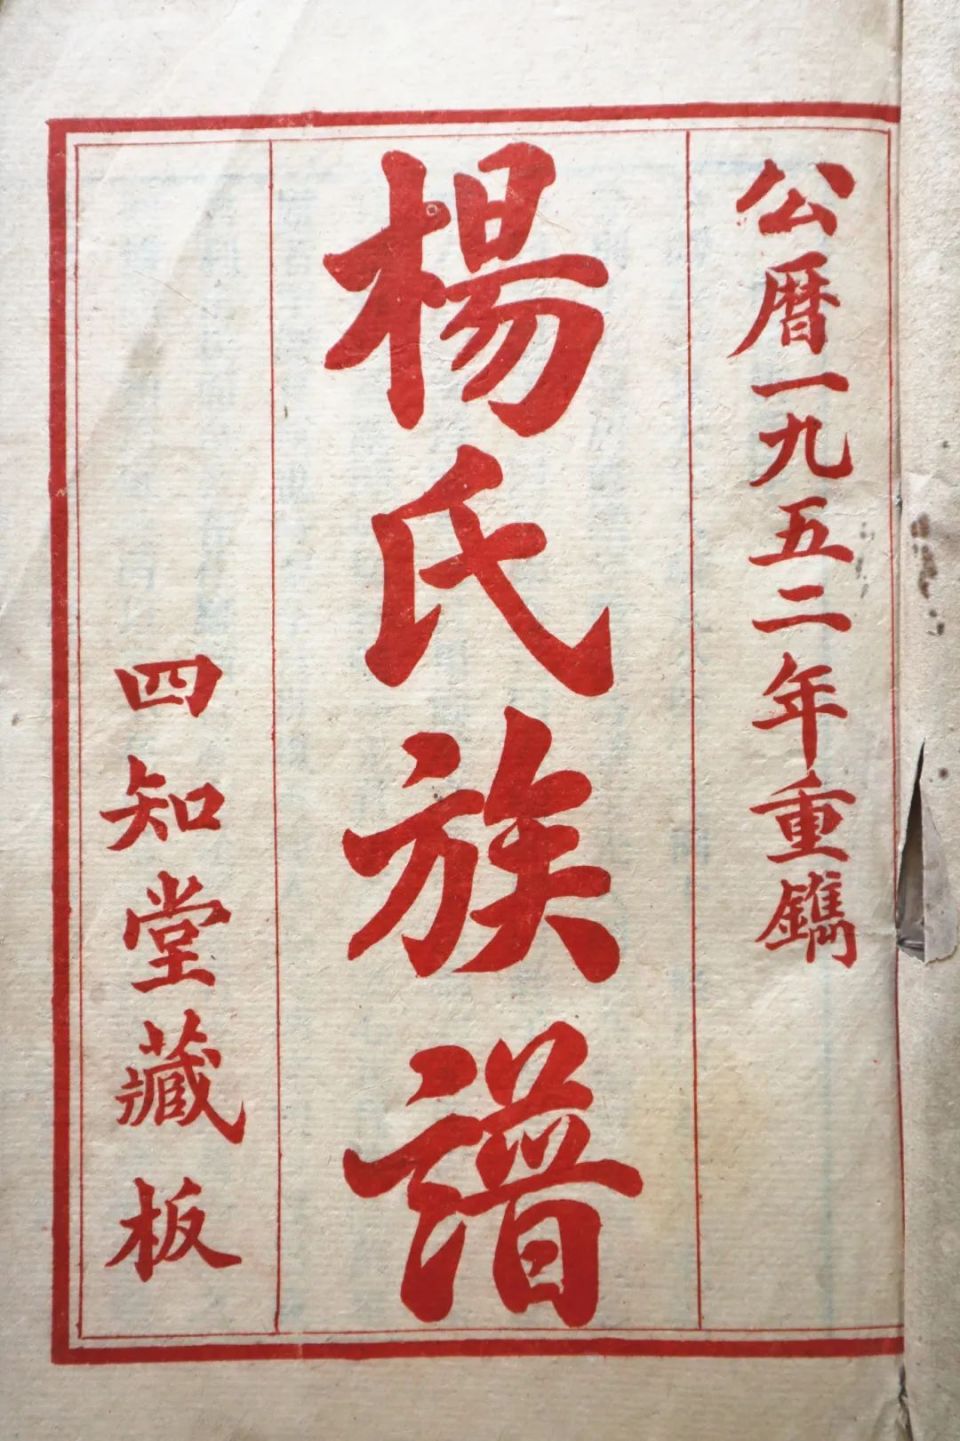 公曆一九五二年重鐫
楊氏族譜
四知堂藏板